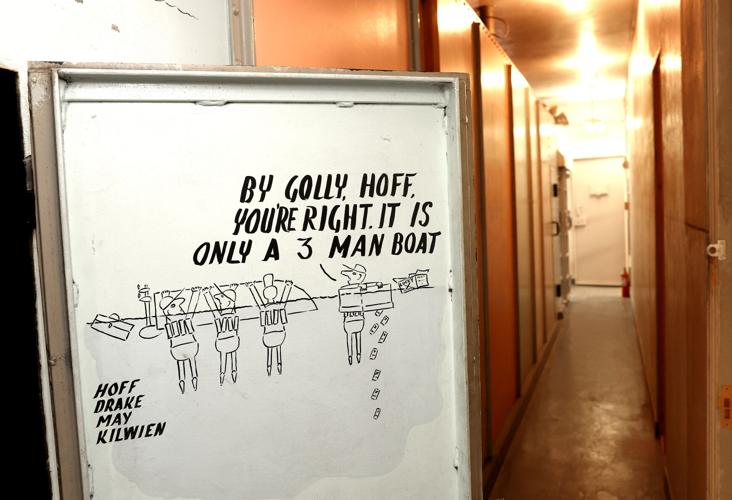 BY GOLLY, HOFF,
YOU'RE RIGHT. IT IS
ONLY A 3 MAN BOAT
HOFF
DRAKE
MAY
KILWIEN